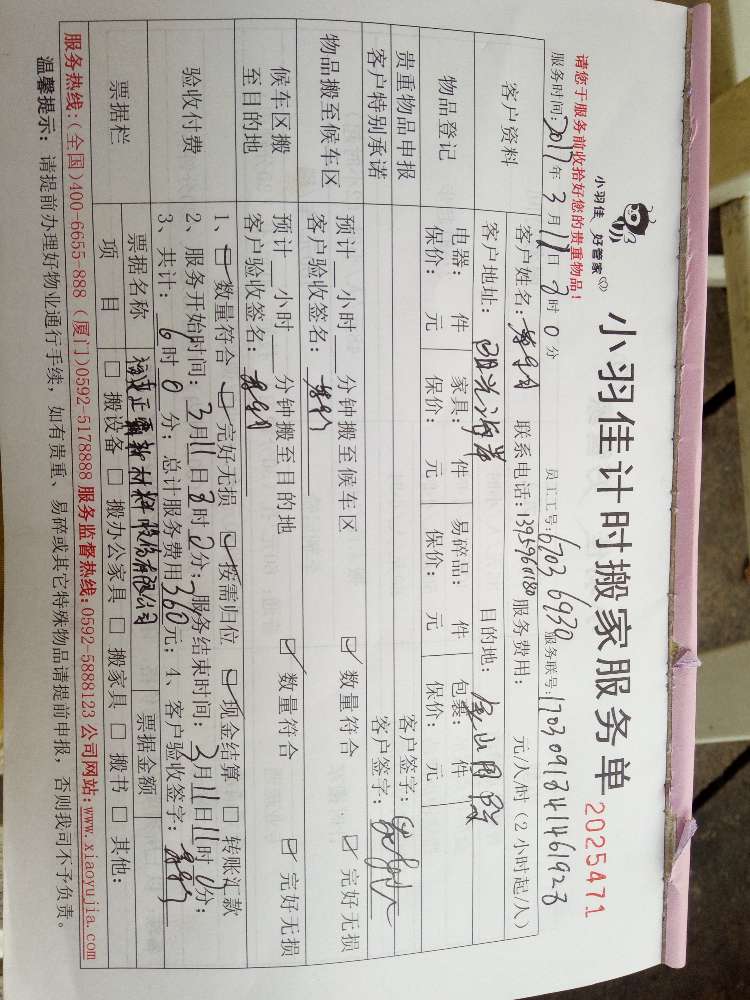 小羽佳 好管家
小羽佳计时搬家服务单 2025471
请您于服务前收拾好您的贵重物品!
员工工号: 6703 6930 服务联号: 1703091841461928
服务时间: 2017年3月11日8时0分
客户资料
客户姓名: 联系电话: 服务费用: 元/人/时 (2小时起/人)
客户地址: 阳光海岸 目的地:
物品登记
电器: 件 家具: 件 易碎品: 件 包裹: 件
保价: 元 保价: 元 保价: 元 保价: 元
贵重物品申报 客户签字:
客户特别承诺 客户签字:
物品搬至候车区
预计 小时 分钟搬至候车区 ☑ 数量符合 ☑ 完好无损
客户验收签名:
候车区搬至目的地
预计 小时 分钟搬至目的地 ☑ 数量符合 ☑ 完好无损
客户验收签名:
验收付费
1、☑ 数量符合 ☑ 完好无损 ☑ 按需归位 ☑ 现金结算 □ 转账汇款
2、服务开始时间: 3月11日8时2分; 服务结束时间: 3月11日11时0分;
3、共计: 6时0分; 总计服务费用360元; 4、客户验收签字:
票据栏
票据名称 福建正霸新材料股份有限公司 票据金额
项目 □ 搬设备 □ 搬办公家具 □ 搬家具 □ 搬书 □ 其他:
服务热线:(全国)400-6655-888 (厦门)0592-5178888 服务监督热线:0592-5888123 公司网站:www.xiaoyujia.com
温馨提示: 请提前办理好物业通行手续, 如有贵重、易碎或其它特殊物品请提前申报, 否则我司不予负责。